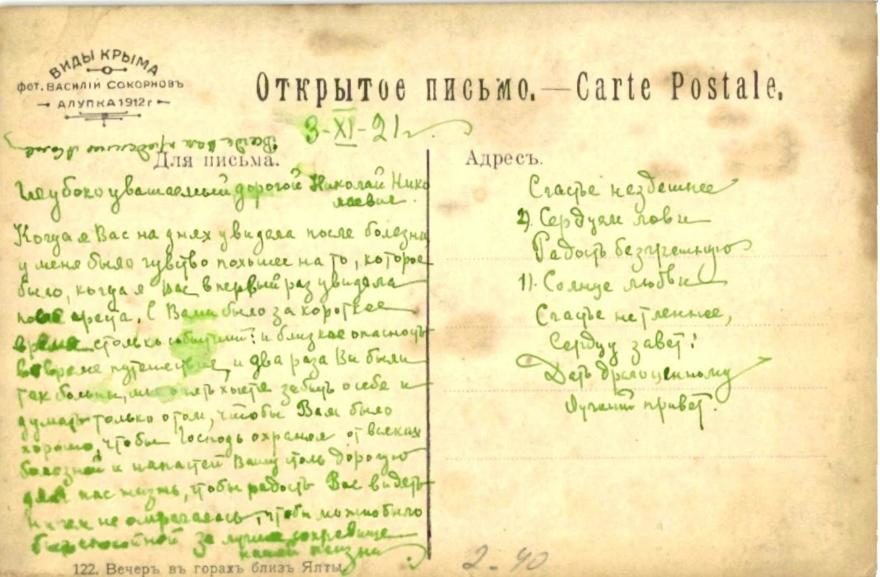 ВИДЫ КРЫМА
ФОТ. ВАСИЛІЙ СОКОРНОВЪ
АЛУПКА 1912 г
Открытое письмо. — Carte Postale.
3-XI-21 г
Для письма.
Адресъ.
Глубокоуважаемый дорогой Николай Нико
лаевич.
Когда я Вас на днях увидала после болезни
у меня было чувство похожее на то, которое
было, когда я Вас в первый раз увидала
после ареста. С Вами было за короткое
время столько событий: и близкое опасность
во время путешествие, и два раза Вы были
так больны, хочется забыть о себе и
думать только о том, чтобы Вам было
хорошо, чтобы Господь охранял от всяких
болезней и напастей Вашу столь дорогую
для нас жизнь, чтобы радость Вас видеть
ничем не омрачалась, чтобы можно было
быть спокойной за лучшее сокровище
нашей жизни.
Счастье нездешнее
2) Сердцем лови
Радость безгрешную
1) Солнце любви
Счастье нетленнее,
Сердцу завет:
Дать драгоценному
Лучший привет.
122. Вечеръ въ горахъ близъ Ялты.
2-40